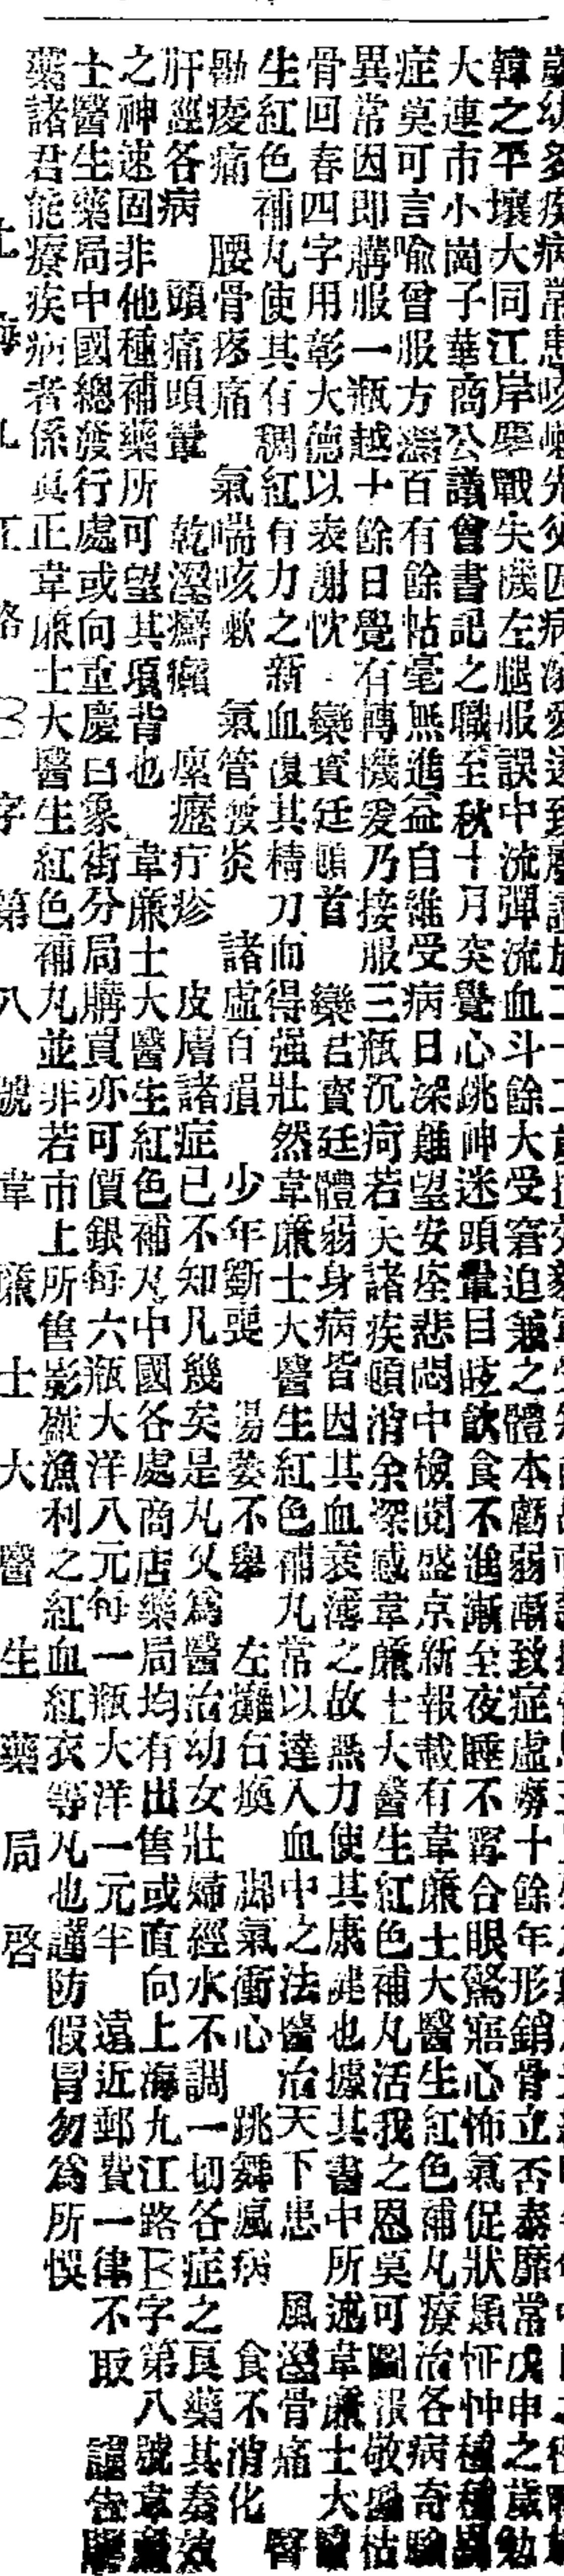 歲幼多疾病常患咳嗽先父因病
韓之平壤大同江岸釁戰失機左腿服誤中流彈流血斗餘大受窘迫兼之體本虧弱漸致症虛癆十餘年形銷骨立否泰靡常戊申之歲勉
大連市小崗子華商公議會書記之職至秋十月突覺心跳神迷頭暈目眩飲食不進漸至夜睡不寧合眼驚寤心怖氣促狀類怔忡種種異
症莫可言喻曾服方藥百有餘帖毫無進益自維受病日深難望安痊悲悶中檢閱盛京新報載有韋廉士大醫生紅色補丸療治各病奇騐
異常因即購服一瓶越十餘日覺有轉機爰乃接服三瓶沉疴若失諸疾頓消余深感韋廉士大醫生紅色補丸活我之恩莫可圖報敬攝枯
骨回春四字用彰大德以表謝忱 欒賓廷頓首 欒君賓廷體弱身病皆因其血衰薄之故無力使其康健也據其書中所述韋廉士大醫
生紅色補丸使其有稠紅有力之新血復其精力而得强壯然韋廉士大醫生紅色補丸常以達入血中之法醫治天下患 風溼骨痛 醫
勘痠痛 腰骨疼痛 氣喘咳嗽 氣管發炎 諸虛百損 少年斵喪 陽萎不舉 左癱右瘓 脚氣衝心 跳舞瘋病 食不消化
肝經各病 頭痛頭暈 乾溼癬癩 瘰癧疔疹 皮膚諸症已不知凡幾矣是丸又爲醫治幼女壯婦經水不調一切各症之良藥其奏效
之神速固非他種補藥所可望其項背也 韋廉士大醫生紅色補丸中國各處商店藥局均有出售或直向上海九江路B字第八號韋廉
士醫生藥局中國總發行處或向重慶白象街分局購買亦可價銀每六瓶大洋八元每一瓶大洋一元半 遠近郵費一律不取 謹告
藥諸君能療疾病者係真正韋廉士大醫生紅色補丸並非若市上所售影戤漁利之紅血紅衣等丸也謹防假冒勿爲所悞
上海九江路B字第八號韋廉士大醫生藥局啓